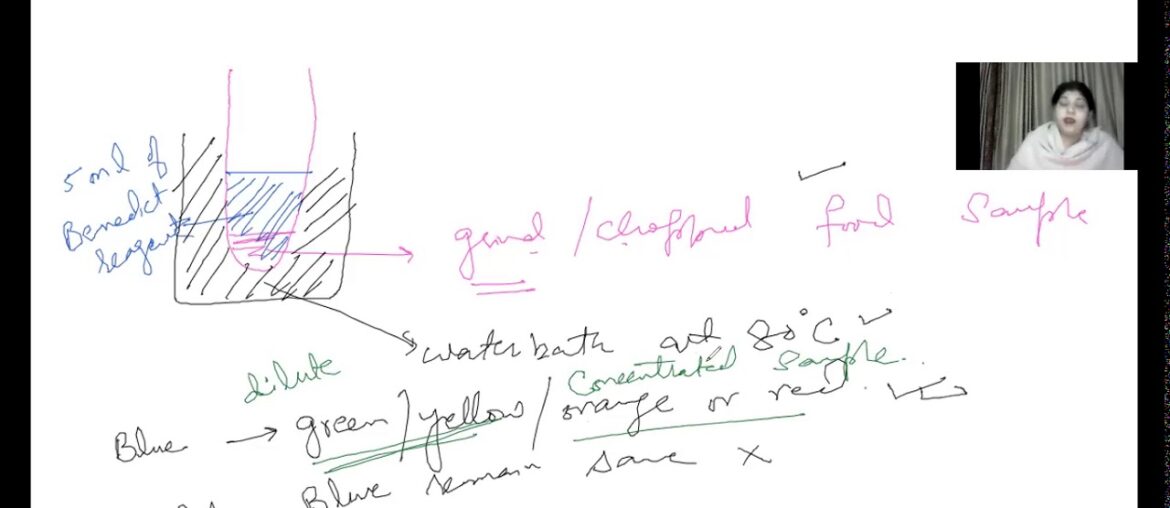 5 ml of
Benedict
reagent
grind / chopped food sample
water bath at 80°C
dilute
Concentrated sample.
Blue → green / yellow / orange or red.
Blue remain same ×